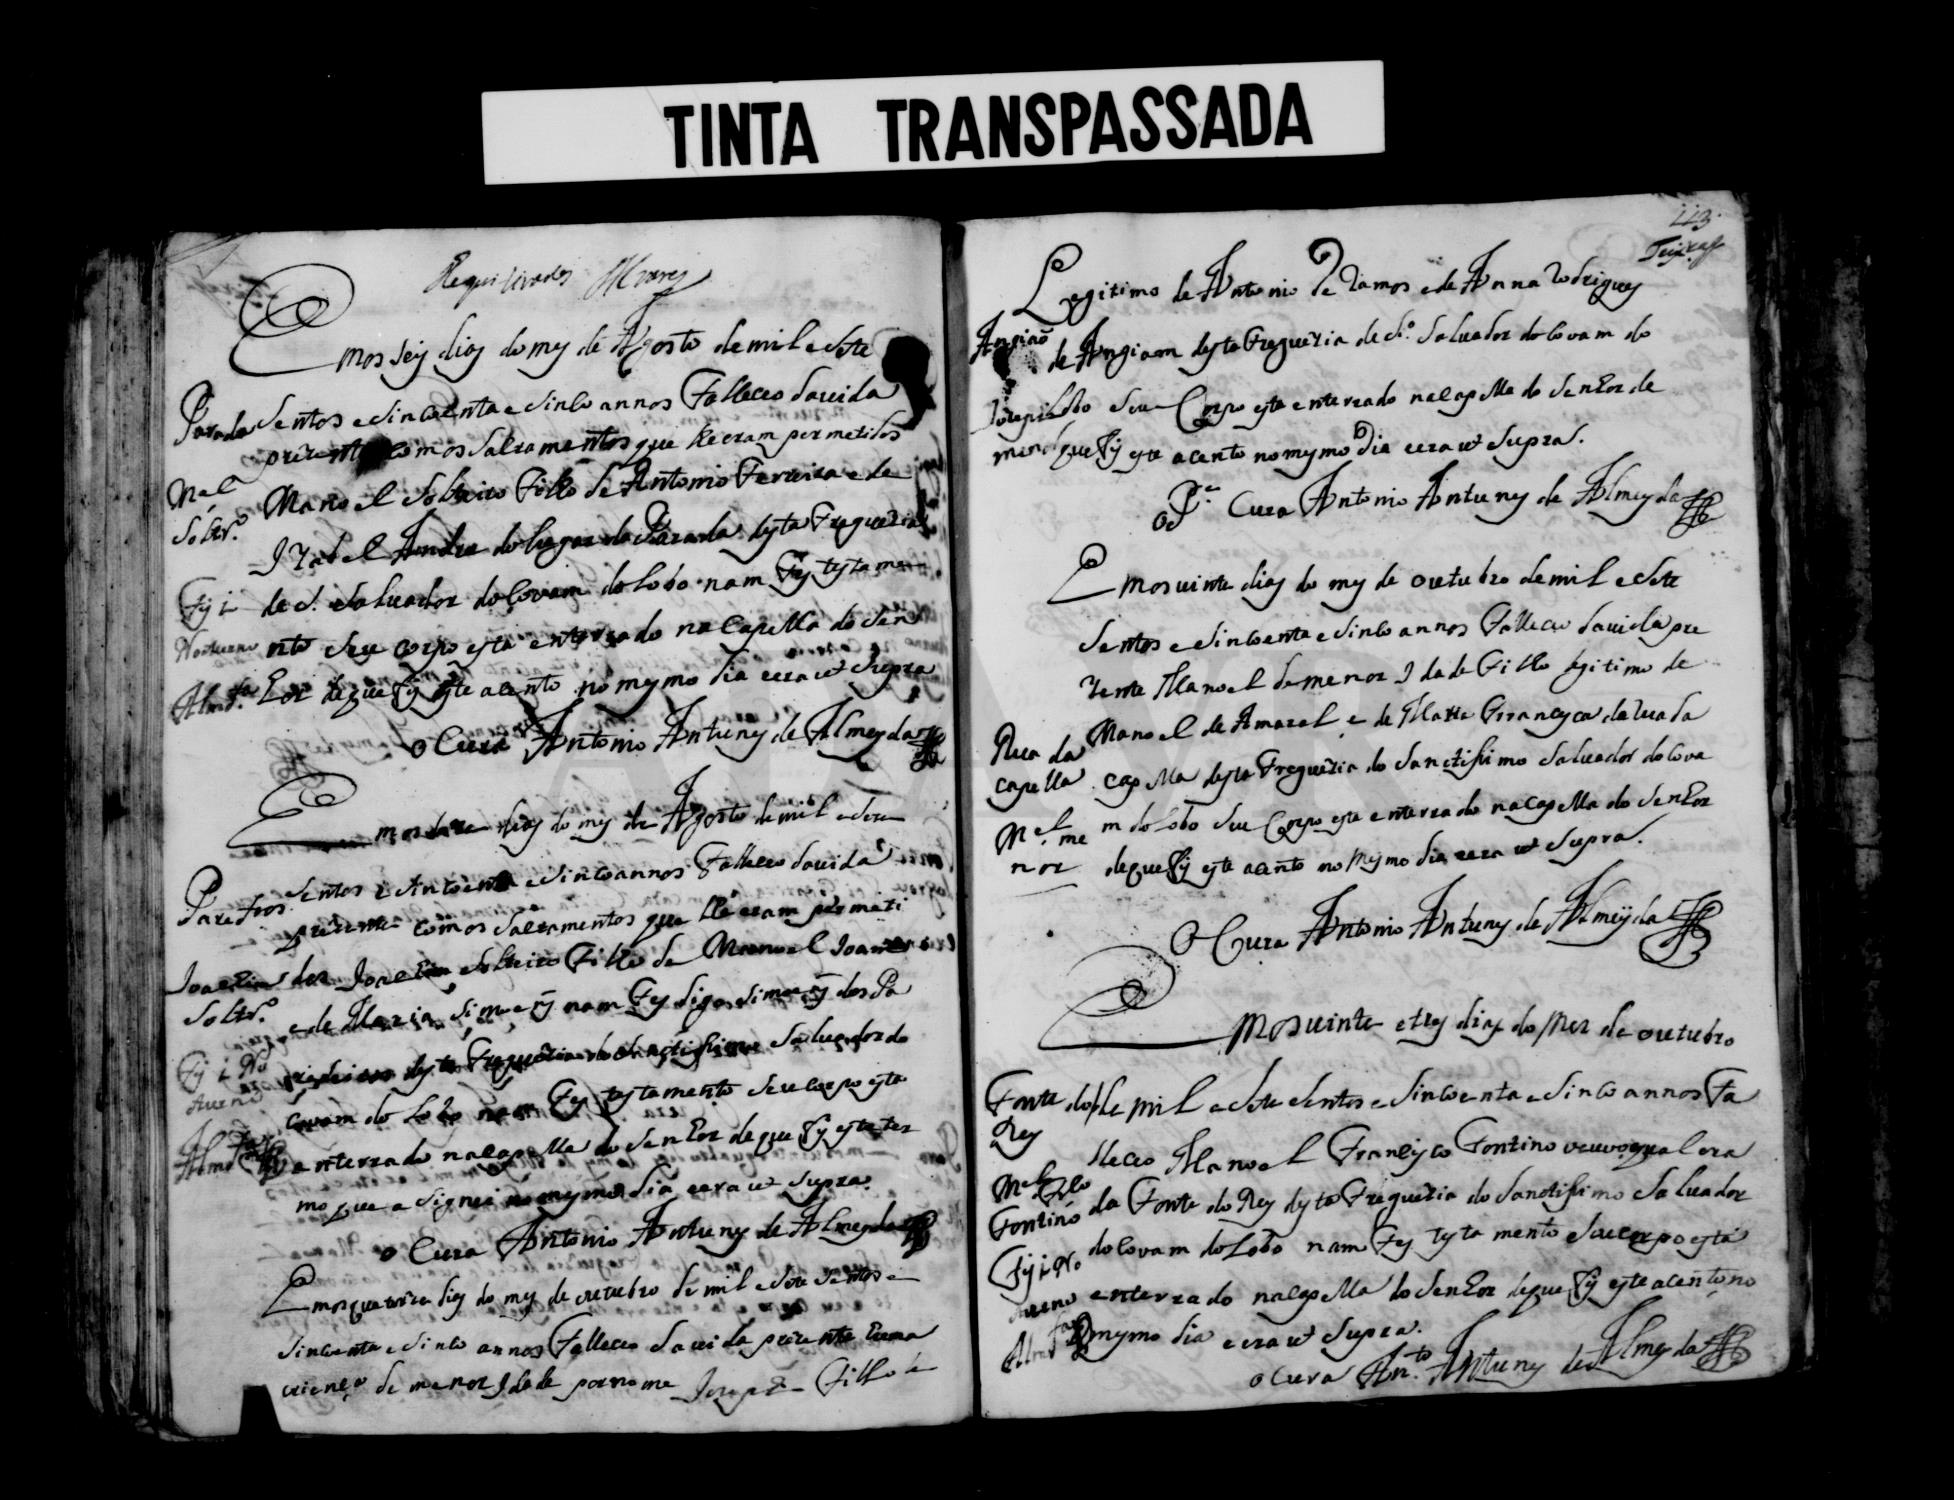 TINTA TRANSPASSADA
Emos seis dias do mes de Agosto de mil e sete
Parada
sentos e sincoenta e sinco annos Falleceo da vida
prezente com os Sacramentos que lhe eram permetidos
Mel
Soltr.º
Manoel solteiro Filho de Antonio Ferreira e de
Izabel Andre do lugar da Parada desta Freguezia
Fis i
Nocturno
de S. Salvador do Covam do Lobo nam Fes testame
nto seu corpo esta enterrado na Capella do Sen
Almd.ª
hor de que Fis este acento no mesmo dia eera ut supra
o Cura Antonio Antunes de Almeyda
Emos doze dias do mes de Agosto de mil e sete
Paredios
sentos e sincoenta e sinco annos Falleceo da vida
prezente com os Sacramentos que lhe eram permeti
Joachim
Soltr.º
dos Joachim solteiro Filho de Manoel Joam
e de Maria Simoeis nam Fes digo Simoeis dos Pa
Fis i No
cturno
desta Freguezia do Sanctissimo Salvador do
Covam do Lobo nam Fes testamento seu corpo esta
Almd.ª
enterrado na Capella do Senhor de que Fis este ter
mo que asignei no mesmo dia eera ut supra
o Cura Antonio Antunes de Almeyda
Emos quatorze dias do mes de outubro de mil e sete sentos e
sincoenta e sinco annos Falleceo da vida prezente huma
criença de menor Idade por nome Joseph Filho
113
Legitimo de Antonio de Ramos e de Anna Rodrigues
Angiaõ
de Angiam desta Freguezia de S.º Salvador do Covam do
Joseph
menor
Lobo seu Corpo esta enterrado na Capella do Senhor de
que Fis este acento no mesmo dia eera ut supra.
o P.e Cura Antonio Antunes de Almeyda
Emos vinte dias do mes de outubro de mil e sete
sentos e sincoenta e sinco annos Falleceo da vida pre
zente Manoel de menor Idade Filho legitimo de
Rua da
capella
Manoel de Amaral e de Maria Francisca da Rua da
capella desta Freguezia do Sanctissimo Salvador do Cova
Mel. me
nor
m do Lobo seu Corpo esta enterrado na Capella do Senhor
de que Fis este acento no mesmo dia eera ut supra.
O Cura Antonio Antunes de Almeyda
Emos vinte e tres dias do mes de outubro
Fonte do
Rey
de mil e sete sentos e sincoenta e sinco annos Fa
lleceo Manoel Francisco Fontino veuvo qual era
Mel Fco
Fontino
da Fonte do Rey desta Freguezia do Sanctissimo Salvador
Fis i No
cturno
do Covam do Lobo nam Fes testamento seu corpo esta
enterrado na Capella do Senhor de que Fis este acento no
Almd.ª
mesmo dia eera ut supra.
o Cura An.to Antunes de Almeyda